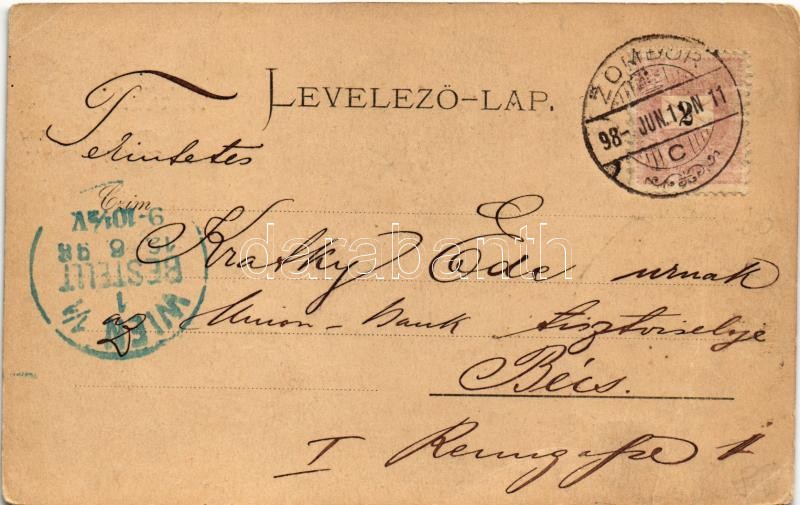 LEVELEZŐ-LAP.
ZOMBOR
98- JUN. 11
C
2
Tekintetes
Czim
Kratky Ede urnak
az Union-bank tisztviselője
Bécs.
I Renngasse 1
WIEN 1
BESTELLT
6 98
9-10½V
darabanth